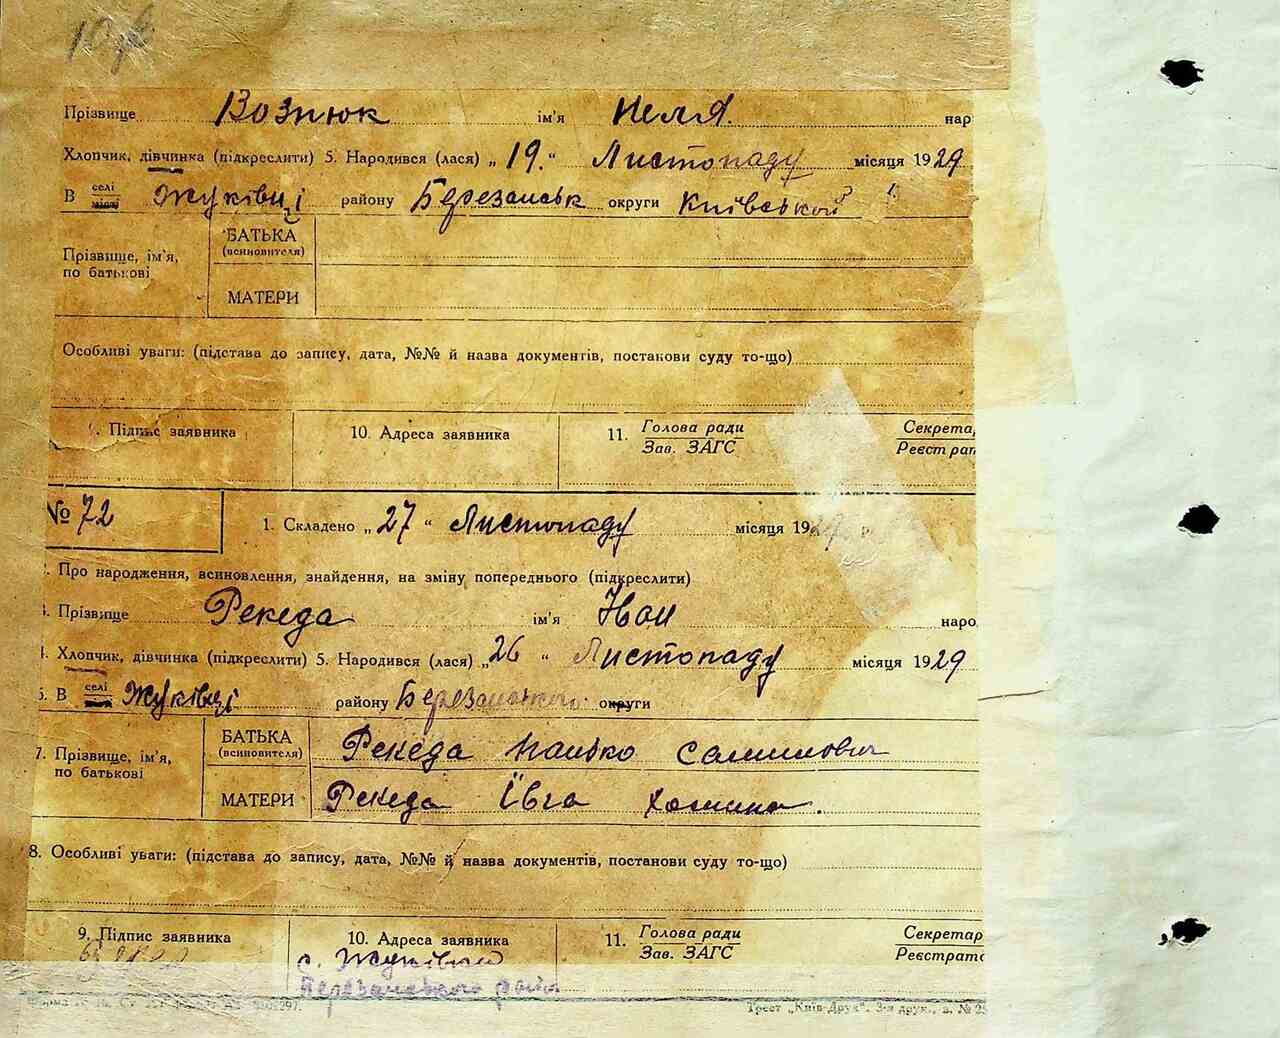 Прізвище Вознюк ім'я Неля. нар
Хлопчик, дівчинка (підкреслити) 5. Народився (лася) „ 19. " Листопаду місяця 1929
В селі місті Жуківці району Березанськ округи Київської
Прізвище, ім'я, по батькові
БАТЬКА (всиновителя)
МАТЕРИ
Особливі уваги: (підстава до запису, дата, №№ й назва документів, постанови суду то-що)
Підпис заявника 10. Адреса заявника 11. Голова ради Зав. ЗАГС Секрета Реєстрат
№ 72 1. Складено „ 27 " Листопаду місяця 19
Про народження, всиновлення, знайдення, на зміну попереднього (підкреслити)
Прізвище Рекеда ім'я наро
Хлопчик, дівчинка (підкреслити) 5. Народився (лася) „ 26 " Листопаду місяця 1929
6. В селі Жуківці району Березанського округи
7. Прізвище, ім'я, по батькові
БАТЬКА (всиновителя) Рекеда
МАТЕРИ Рекеда Ївга
8. Особливі уваги: (підстава до запису, дата, №№ й назва документів, постанови суду то-що)
9. Підпис заявника 10. Адреса заявника 11. Голова ради Зав. ЗАГС Секретар Реєстрато
с. Жуківці
Березанського район
Трест „Київ-Друк". 3-я друк., з. № 25